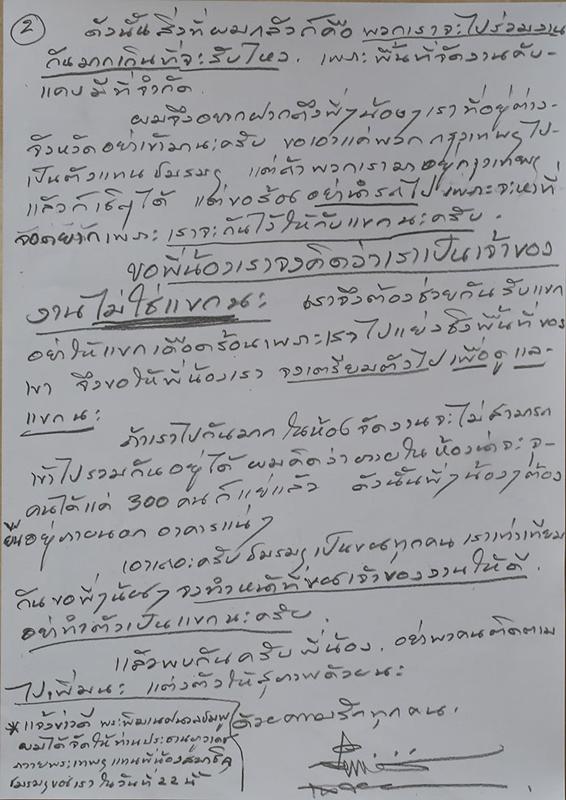 2
ดังนั้นสิ่งที่ผมกลัวก็คือ พวกเราจะไปร่วมงาน
กันมากเกินที่จะรับไหว. เพราะพื้นที่จัดงานคับ-
แคบมีที่จำกัด.
ผมจึงอยากฝากถึงพี่ๆน้องๆเราที่อยู่ต่าง-
จังหวัดอย่าเข้ามานะครับ ขอเอาแค่พวก กรุงเทพฯไป-
เป็นตัวแทน ชมรมฯ แต่ถ้าพวกเรามาอยู่กรุงเทพฯ
แล้วก็เชิญได้ แต่ขอร้องอย่านำรถไป เพราะจะหาที่
จอดยากเพราะ เราจะกันไว้ให้กับแขกนะครับ.
ขอพี่น้องเราจงคิดว่าเราเป็นเจ้าของ
งานไม่ใช่แขกนะ เราจึงต้องช่วยกันรับแขก
อย่าให้แขกเดือดร้อนเพราะเราไปแย่งชิงพื้นที่ของ
เขา จึงขอให้พี่น้องเรา จงเตรียมตัวไปเพื่อดูแล-
แขกนะ
ถ้าเราไปกันมาก ในห้องจัดงานจะไม่สามารถ
เข้าไปรวมกันอยู่ได้ ผมคิดว่าภายในห้องน่าจะจุ-
คนได้แค่ 300 คนก็แย่แล้ว ดังนั้นพี่ๆน้องๆต้อง
ยืนอยู่ภายนอก อาคารแน่ๆ
เอาเถอะครับ ชมรมฯ เป็นของทุกคน เราเท่าเทียม
กัน ขอพี่ๆน้องๆ จงทำหน้าที่ของเจ้าของงานให้ดี.
อย่าทำตัวเป็นแขกนะครับ.
แล้วพบกันครับพี่น้อง. อย่าพาคนติดตาม
ไปเพิ่มนะ แต่งตัวให้สุภาพด้วยนะ
ด้วยความรักทุกคน.
*แจ้งข่าวดี พระพิฆเนศ
ผมได้จัดให้ท่านประธาน
ถวายพระเทพฯ แทนพี่น้องสมาชิก
ชมรมฯของเรา ในวันที่ 22 นี้